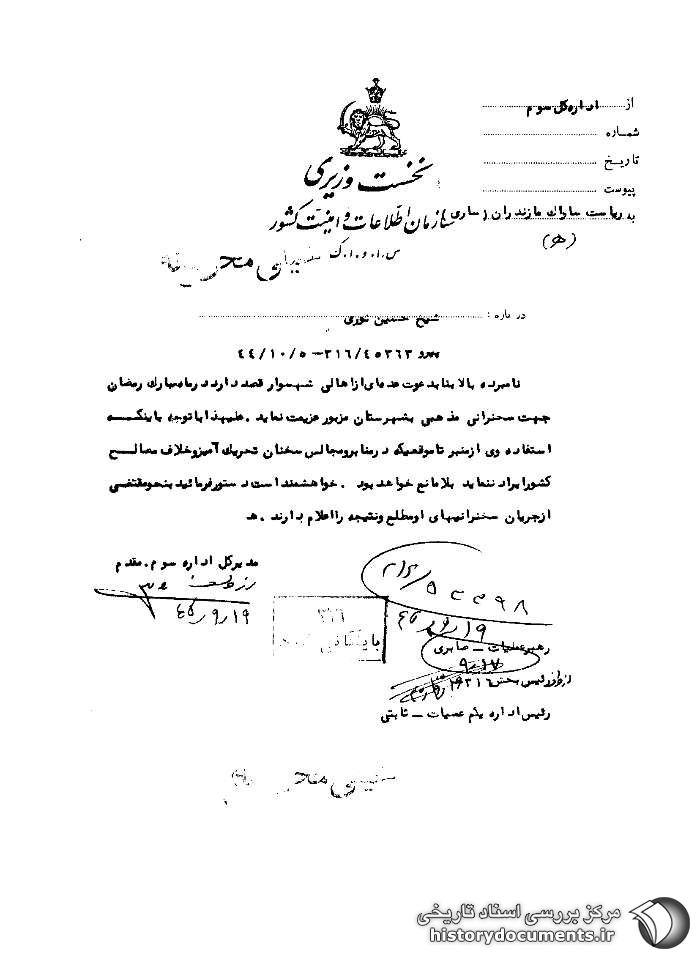 از اداره کل سوم
شماره
تاریخ
پیوست
نخست وزیری
سازمان اطلاعات و امنیت کشور
س.ا.و.ا.ک
به ریاست ساواك مازندران (ساری)
(ه‍)
خیلی محرمانه
درباره : شیخ حسین نوری
پیرو ۳۱۶/۴۵۳۶۳-۴۴/۱۰/۵
نامبرده بالا بنا بدعوت عده ای از اهالی شهسوار قصد دارد در ماه مبارك رمضان
جهت سخنرانی مذهبی بشهرستان مزبور عزیمت نماید . علیهذا با توجه باینکه
استفاده وی از منبر تا موقعیکه در منابر و مجالس سخنان تحریك آمیز و خلاف مصالح
کشور ایراد ننماید بلامانع خواهد بود . خواهشمند است دستور فرمائید بنحو مقتضی
از جریان سخنرانیهای او مطلع و نتیجه را اعلام دارند . ه‍
مدیرکل اداره سوم . مقدم
۴۵/۹/۱۹
۳۱۶/
۵۳۳۹۸
۴۵/۹/۱۹
۳۱۶
بایگانی
رهبر عملیات - صابری
۹/۱۷
از طرف رئیس بخش ۳۱۶
رئیس اداره یکم عملیات - ثابتی
خیلی محرمانه
مرکز بررسی اسناد تاریخی
historydocuments.ir